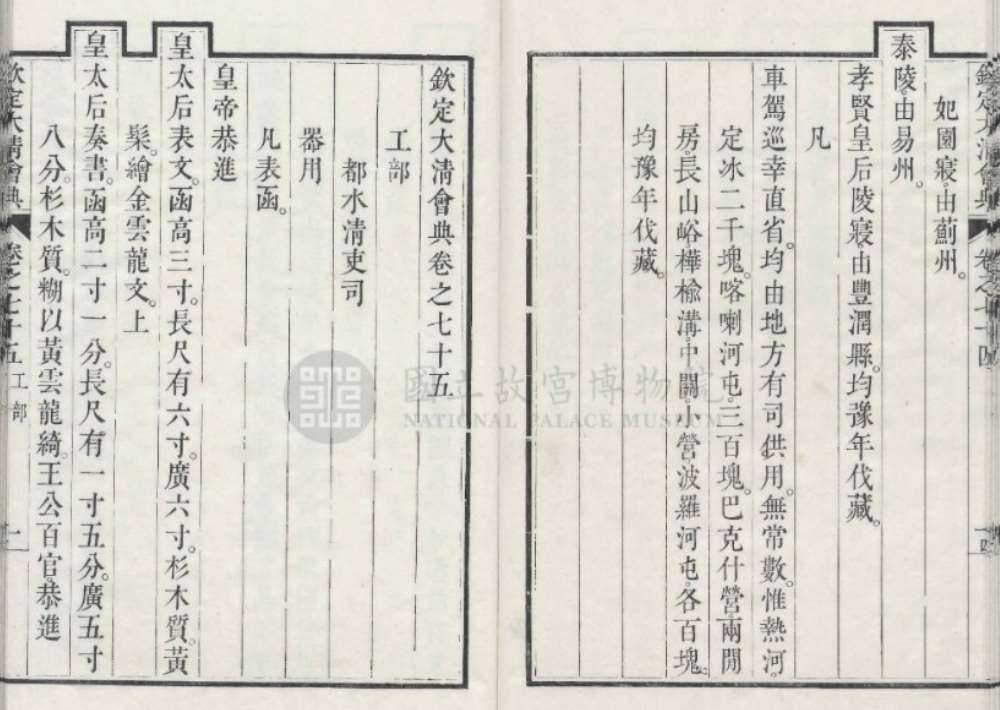 欽定大清會典 卷之七十四 十四
妃園寢。由薊州。
泰陵。由易州。
孝賢皇后陵寢。由豐潤縣。均豫年伐藏。
凡
車駕巡幸直省。均由地方有司供用。無常數。惟熱河
定冰二千塊。喀喇河屯。三百塊。巴克什營。兩閒
房。長山峪。樺榆溝。中關。小營。波羅河屯。各百塊。
均豫年伐藏。
欽定大清會典卷之七十五
工部
都水清吏司
器用
凡表函。
皇帝恭進
皇太后表文。函高三寸。長尺有六寸。廣六寸。杉木質。黃
髹。繪金雲龍文。上
皇太后奏書。函高二寸一分。長尺有一寸五分。廣五寸
八分。杉木質。糊以黃雲龍綺。王公百官。恭進
欽定大清會典 卷之七十五 工部 一
國立故宮博物院
NATIONAL PALACE MUSEUM